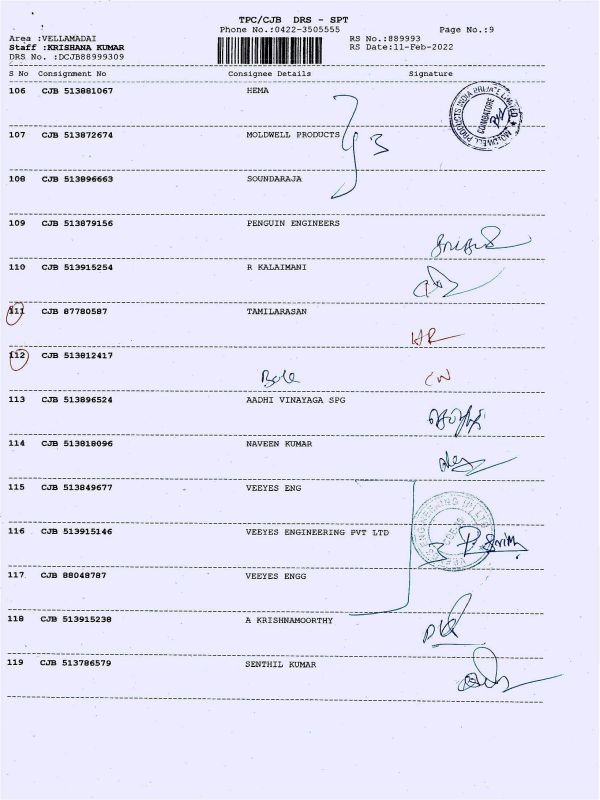 TPC/CJB DRS - SPT
Phone No.:0422-3505555 Page No.:9
Area :VELLAMADAI RS No.:889993
Staff :KRISHANA KUMAR RS Date:11-Feb-2022
DRS No. :DCJB88999309
S No Consignment No Consignee Details Signature
106 CJB 513881067 HEMA
MOLDWELL PRODUCTS INDIA PRIVATE LIMITED
COIMBATORE
107 CJB 513872674 MOLDWELL PRODUCTS
3
108 CJB 513896663 SOUNDARAJA
109 CJB 513879156 PENGUIN ENGINEERS
110 CJB 513915254 R KALAIMANI
111 CJB 87780587 TAMILARASAN
112 CJB 513812417
113 CJB 513896524 AADHI VINAYAGA SPG
114 CJB 513818096 NAVEEN KUMAR
115 CJB 513849677 VEEYES ENG
116 CJB 513915146 VEEYES ENGINEERING PVT LTD
3
117 CJB 88048787 VEEYES ENGG
118 CJB 513915238 A KRISHNAMOORTHY
119 CJB 513786579 SENTHIL KUMAR